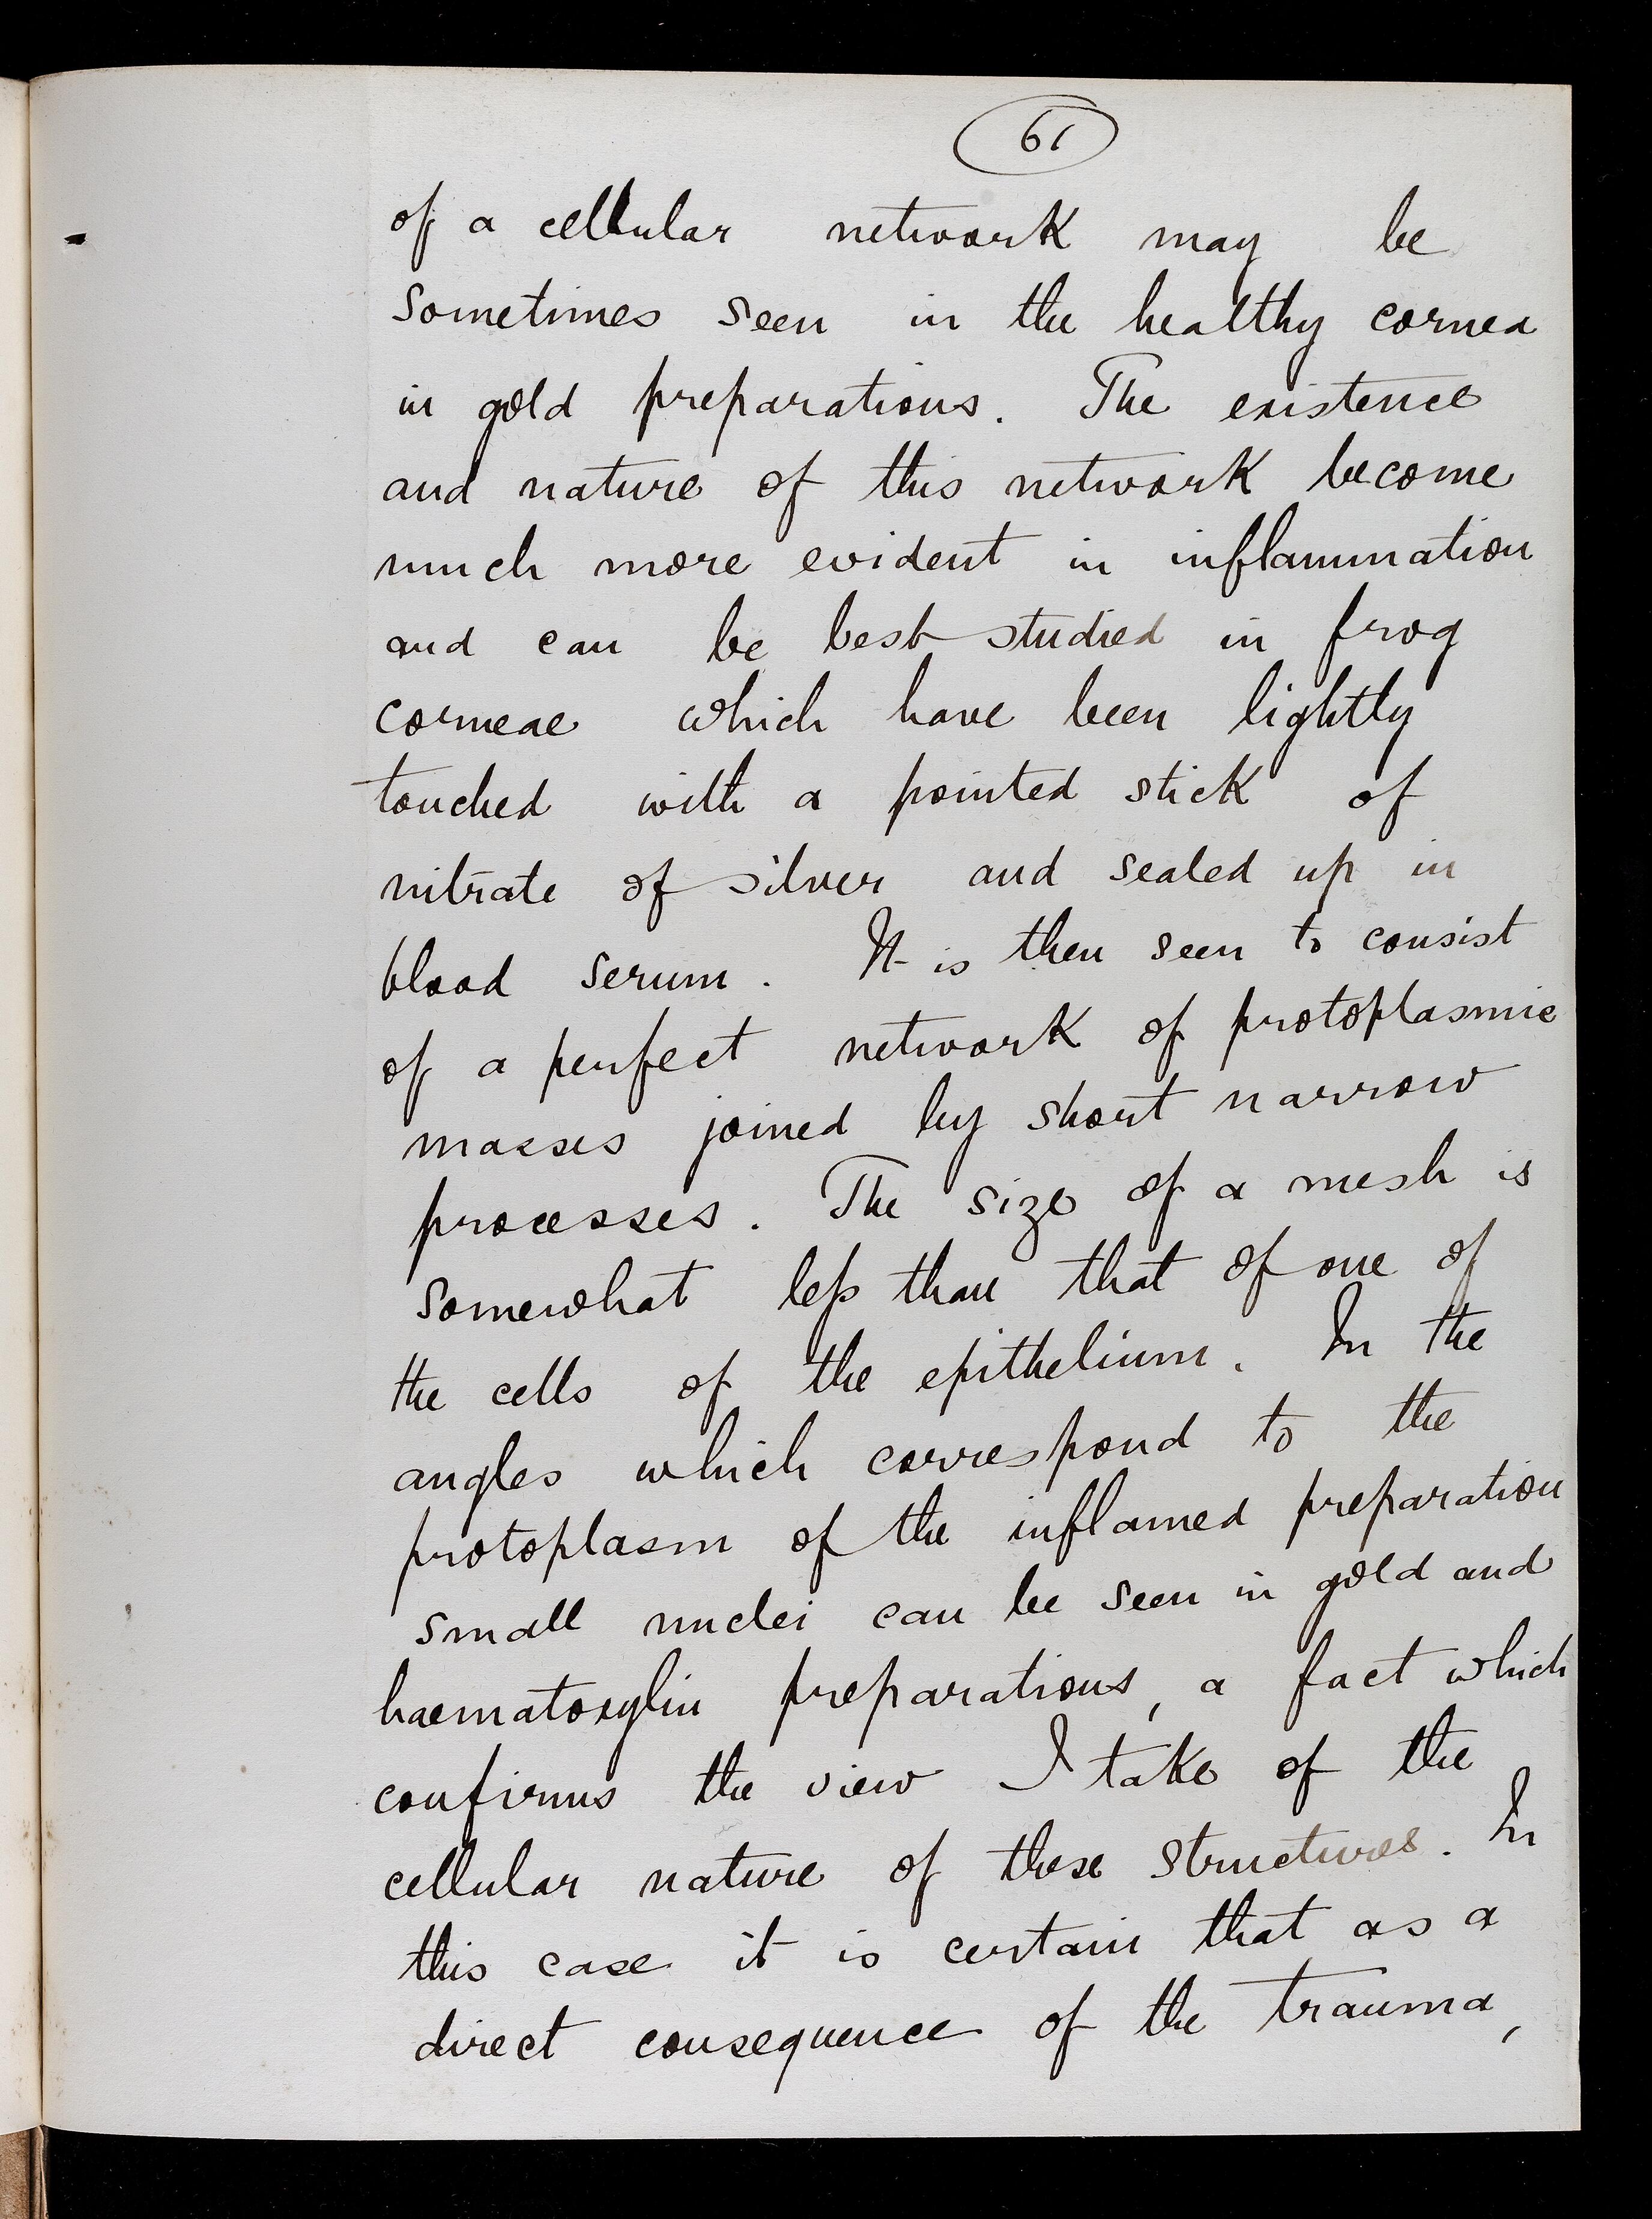 61
of a cellular network may be
sometimes seen in the healthy cornea
in gold preparations. The existence
and nature of this network become
much more evident in inflammation
and can be best studied in frog
corneae which have been lightly
touched with a pointed stick of
nitrate of silver and sealed up in
blood serum. It is then seen to consist
of a perfect network of protoplasmic
masses joined by short narrow
processes. The size of a mesh is
somewhat less than that of one of
the cells of the epithelium. In the
angles which correspond to the
protoplasm of the inflamed preparation
small nuclei can be seen in gold and
haematoxylin preparations, a fact which
confirms the view I take of the
cellular nature of these structures. In
this case it is certain that as a
direct consequence of the trauma,